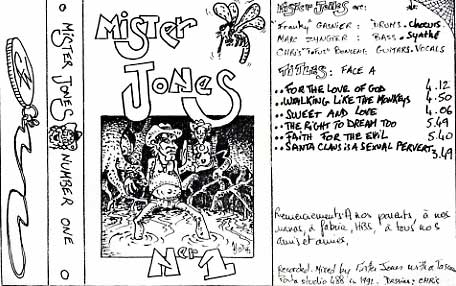 MISTER JONES NUMBER ONE
MISTER
JONES
Ner 1
MISTER JONES are:
Franky GASNIER : DRUMS. Choeurs
MARC : BASS. Synthé
CHRIS "ToFuS" : GUITARS. VOCALS
TITLES: FACE A
.. FOR THE LOVE OF GOD 4.12
.. WALKING LIKE THE MONKEYS 4.50
.. SWEET AND LOVE 4.06
.. THE RIGHT TO DREAM TOO 5.49
.. FAITH FOR THE EVIL 5.40
.. SANTA CLAUS IS A SEXUAL PERVERT 3.49
Remerciements: A nos parents, à nos
nanas, à fabrice, à tous nos
amis et amies,
Recorded. Mixed by Mister Jones with a Tascam
Porta studio 488 in 1992. Dessins: CHRIS